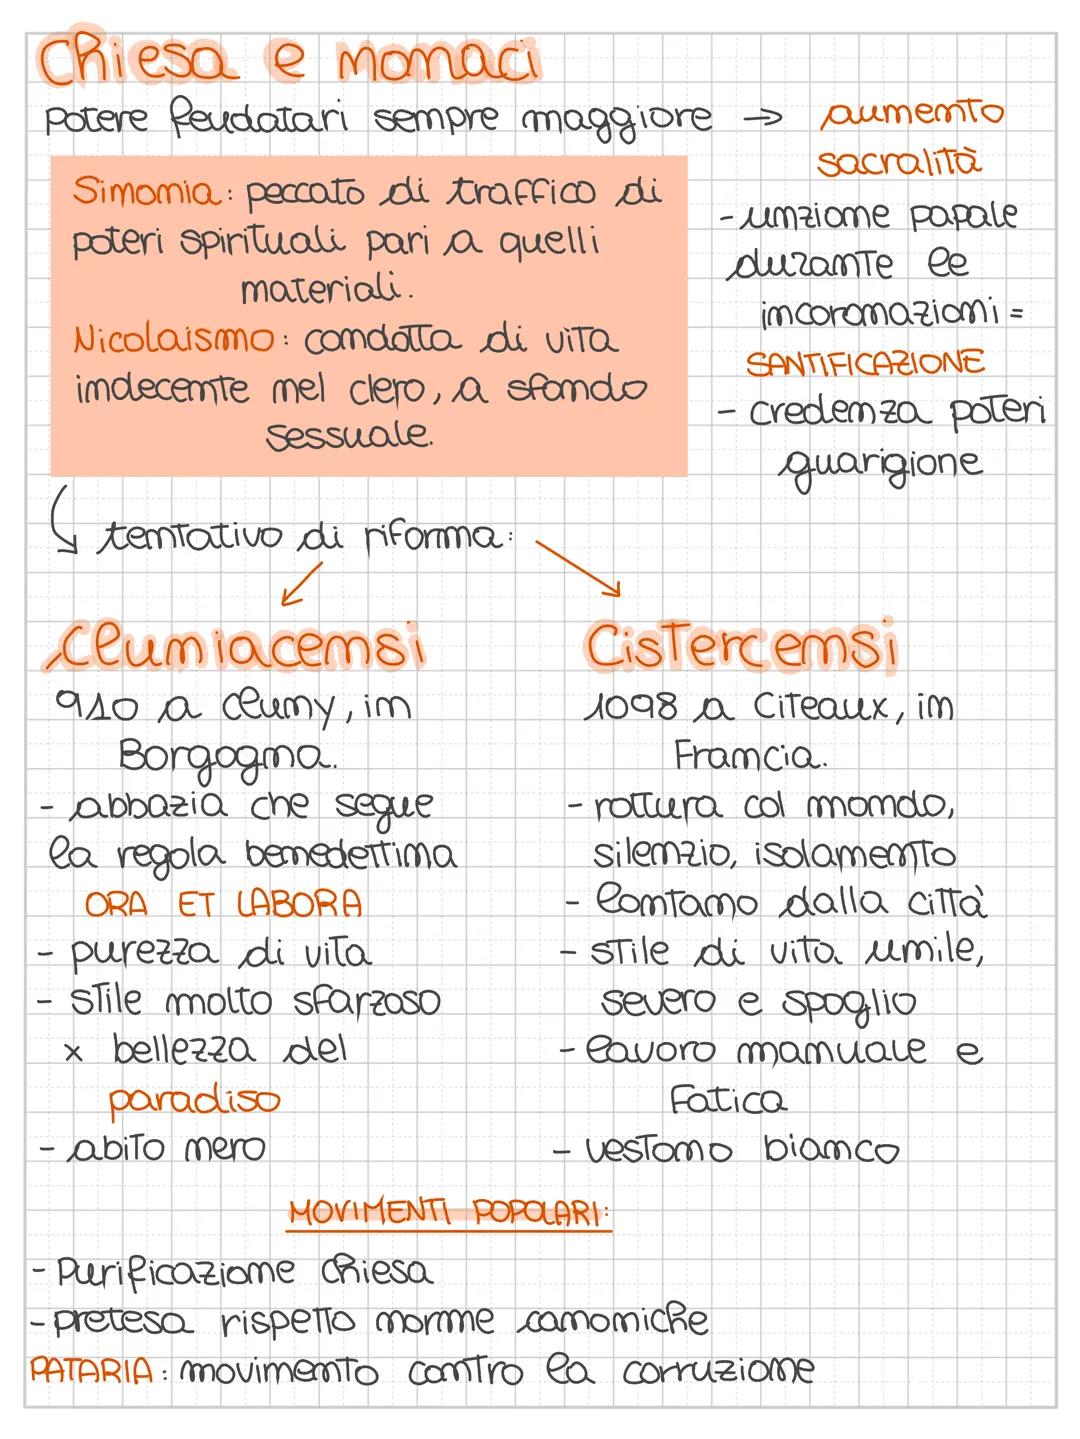 Chiesa e monaci
Potere feudatari sempre maggiore → aumento
sacralità
- unzione papale
durante le
incoronazioni =
SANTIFICAZIONE
- credenza poteri
guarigione
Simonia: peccato di traffico di
poteri spirituali pari a quelli
materiali.
Nicolaismo: condotta di vita
indecente nel clero, a sfondo
sessuale.
tentativo di riforma:
Cluniacensi
910 a Cluny, in
Borgogna.
- abbazia che segue
la regola benedettina
ORA ET LABORA
- purezza di vita
- stile molto sfarzoso
x bellezza del
paradiso
- abito nero
Cistercensi
1098 a Citeaux, in
Francia.
- rottura col mondo,
silenzio, isolamento
- lontano dalla città
- stile di vita umile,
severo e spoglio
- lavoro manuale e
fatica
- vestono bianco
MOVIMENTI POPOLARI:
- Purificazione Chiesa
- pretesa rispetto norme canoniche
PATARIA: movimento contro la corruzione